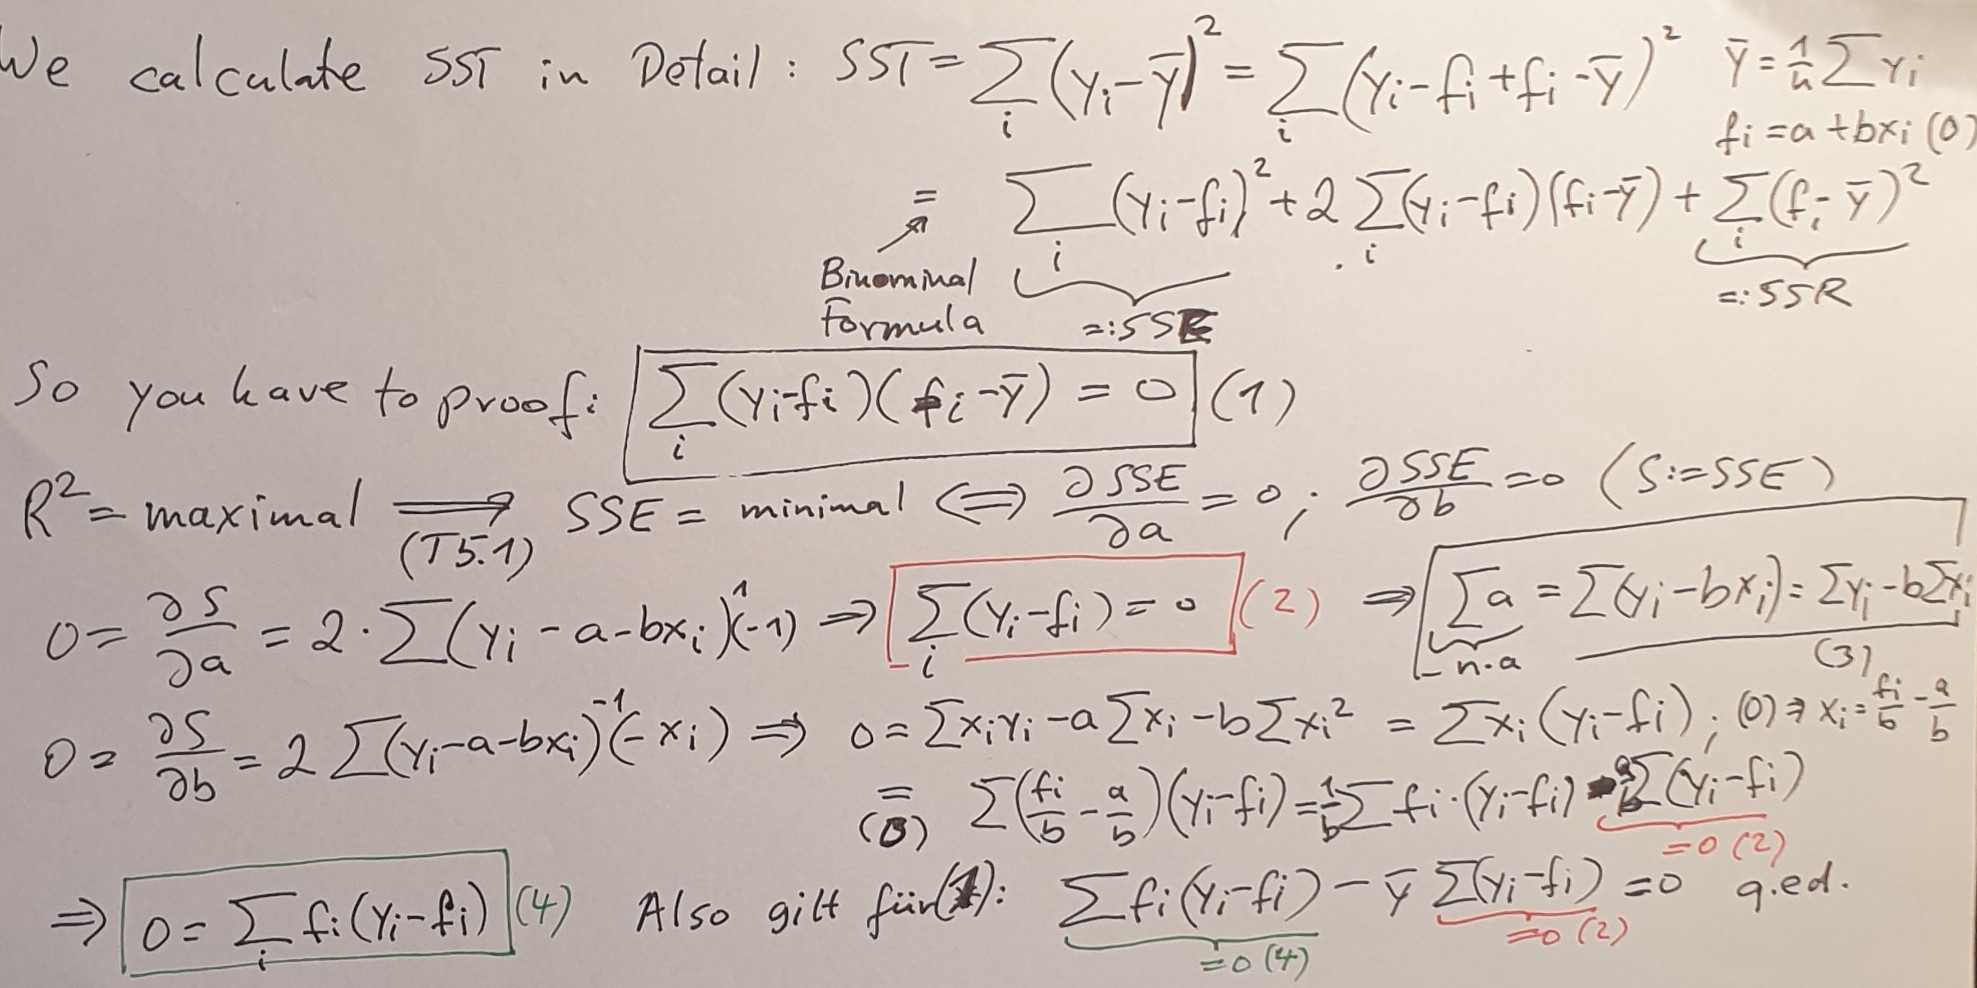 We calculate SST in Detail: SST = ∑_i (y_i - ȳ)² = ∑_i (y_i - f_i + f_i - ȳ)² ȳ = 1/n ∑ y_i
f_i = a + bx_i (0)
= ∑_i (y_i - f_i)² + 2 ∑_i (y_i - f_i)(f_i - ȳ) + ∑_i (f_i - ȳ)²
Binominal Formula =: SSE =: SSR
So you have to proof: ∑_i (y_i - f_i)(f_i - ȳ) = 0 (1)
R² = maximal ⟹ (T5.1) SSE = minimal ⟺ ∂SSE/∂a = 0 ; ∂SSE/∂b = 0 (S := SSE)
0 = ∂S/∂a = 2 · ∑(y_i - a - bx_i)^1 (-1) ⇒ ∑_i (y_i - f_i) = 0 (2) ⇒ ∑a = ∑(y_i - bx_i) = ∑y_i - b∑x_i
n·a (3)
0 = ∂S/∂b = 2 ∑(y_i - a - bx_i)^-1 (-x_i) ⇒ 0 = ∑x_iy_i - a∑x_i - b∑x_i² = ∑x_i(y_i - f_i) ; (0) ⇒ x_i = f_i/b - a/b
= (0) ∑(f_i/b - a/b)(y_i - f_i) = 1/b ∑ f_i · (y_i - f_i) - a/b ∑(y_i - f_i)
= 0 (2)
⇒ 0 = ∑_i f_i(y_i - f_i) (4) Also gilt für (1): ∑ f_i(y_i - f_i) - ȳ ∑(y_i - f_i) = 0 q.ed.
= 0 (4) = 0 (2)